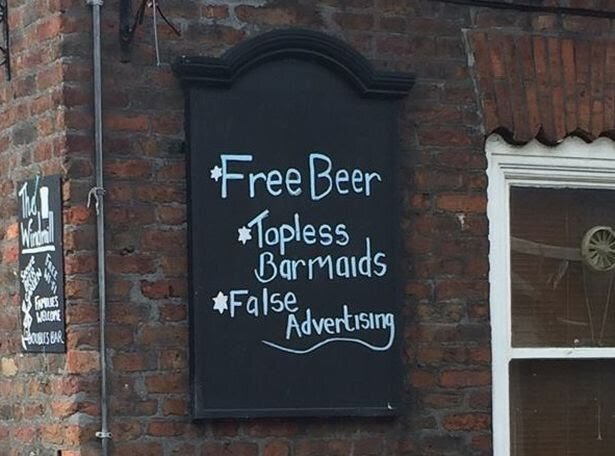 *Free Beer
*Topless
Barmaids
*False
Advertising
The
Windmill
FREE
WI-FI
FAMILIES
WELCOME
DOUBLES BAR